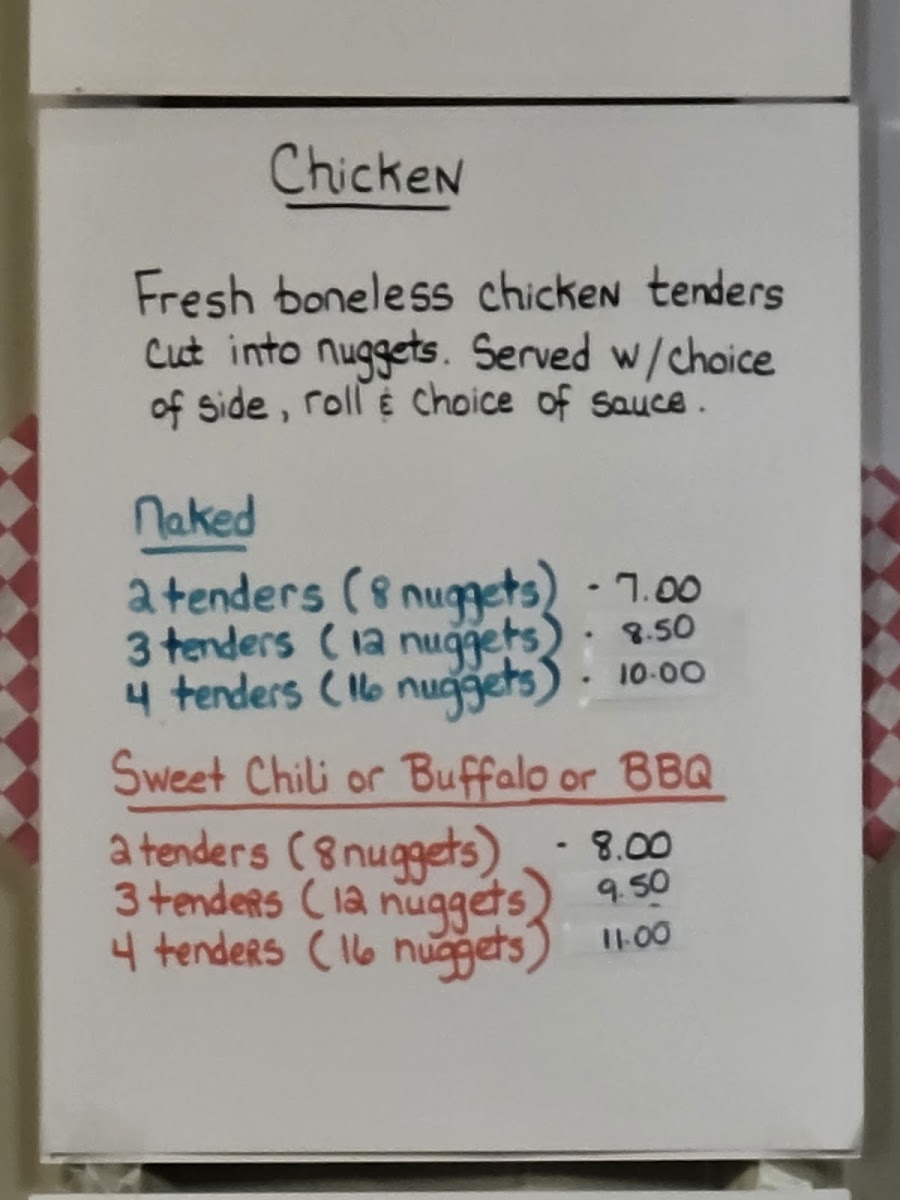 Chicken
Fresh boneless chicken tenders
cut into nuggets. Served w/choice
of side, roll & choice of sauce.
Naked
2 tenders (8 nuggets) - 7.00
3 tenders (12 nuggets) - 8.50
4 tenders (16 nuggets) - 10.00
Sweet Chili or Buffalo or BBQ
2 tenders (8 nuggets) - 8.00
3 tenders (12 nuggets) 9.50
4 tenders (16 nuggets) 11.00